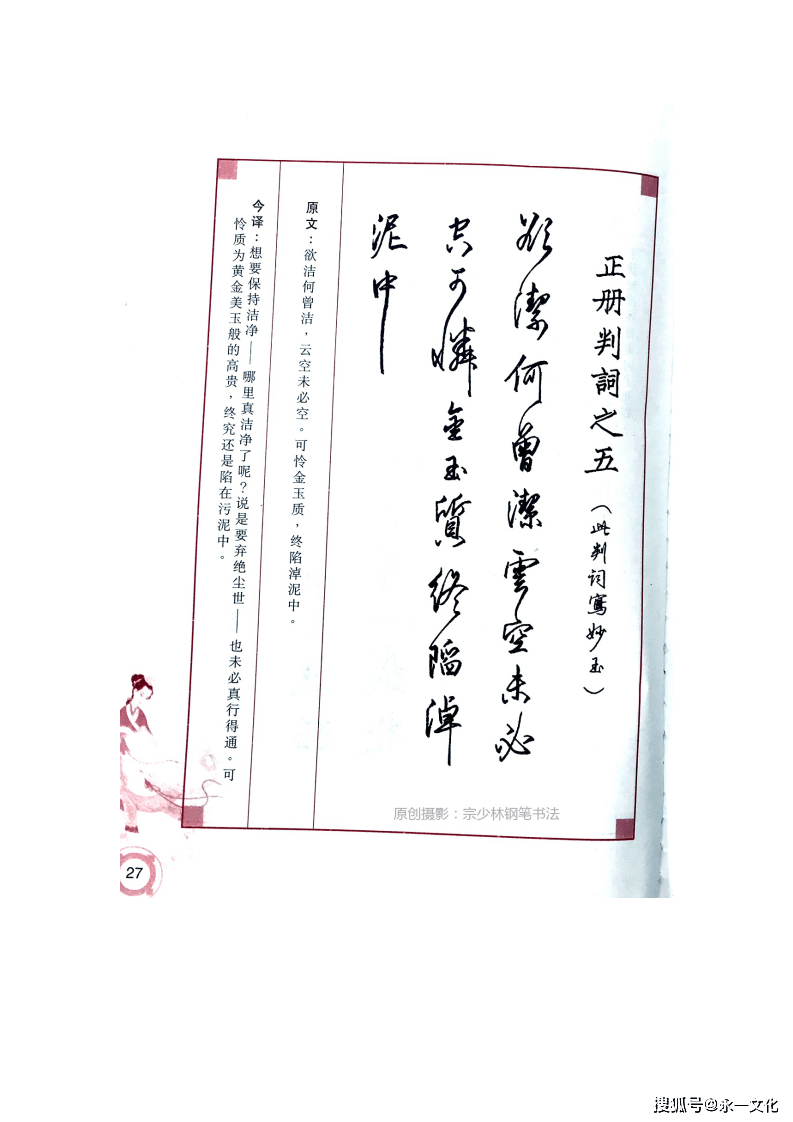 正册判詞之五
（此判词寫妙玉）
欲潔何曾潔雲空未必
空可憐金玉質終陷淖
泥中
原文：欲洁何曾洁，云空未必空。可怜金玉质，终陷淖泥中。
今译：想要保持洁净——哪里真洁净了呢？说是要弃绝尘世——也未必真行得通。可
怜质为黄金美玉般的高贵，终究还是陷在污泥中。
原创摄影：宗少林钢笔书法
27
搜狐号@永一文化